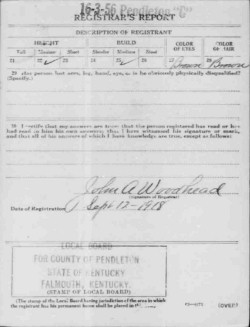 16-3-56 Pendleton "C"
REGISTRAR'S REPORT
DESCRIPTION OF REGISTRANT
HEIGHT BUILD COLOR OF EYES COLOR OF HAIR
Tall Medium Short Slender Medium Stout
21 22 23 24 25 26 27 Brown 28 Brown
29 Has person lost arm, leg, hand, eye, or is he obviously physically disqualified?
(Specify.)
30 I certify that my answers are true; that the person registered has read or has
had read to him his own answers; that I have witnessed his signature or mark,
and that all of his answers of which I have knowledge are true, except as follows:
John A Woodhead
(Signature of Registrar)
Date of Registration Sept 12-1918
LOCAL BOARD
FOR COUNTY OF PENDLETON
STATE OF KENTUCKY
FALMOUTH, KENTUCKY.
(STAMP OF LOCAL BOARD)
(The stamp of the Local Board having jurisdiction of the area in which
the registrant has his permanent home shall be placed in this box.)
(OVER)